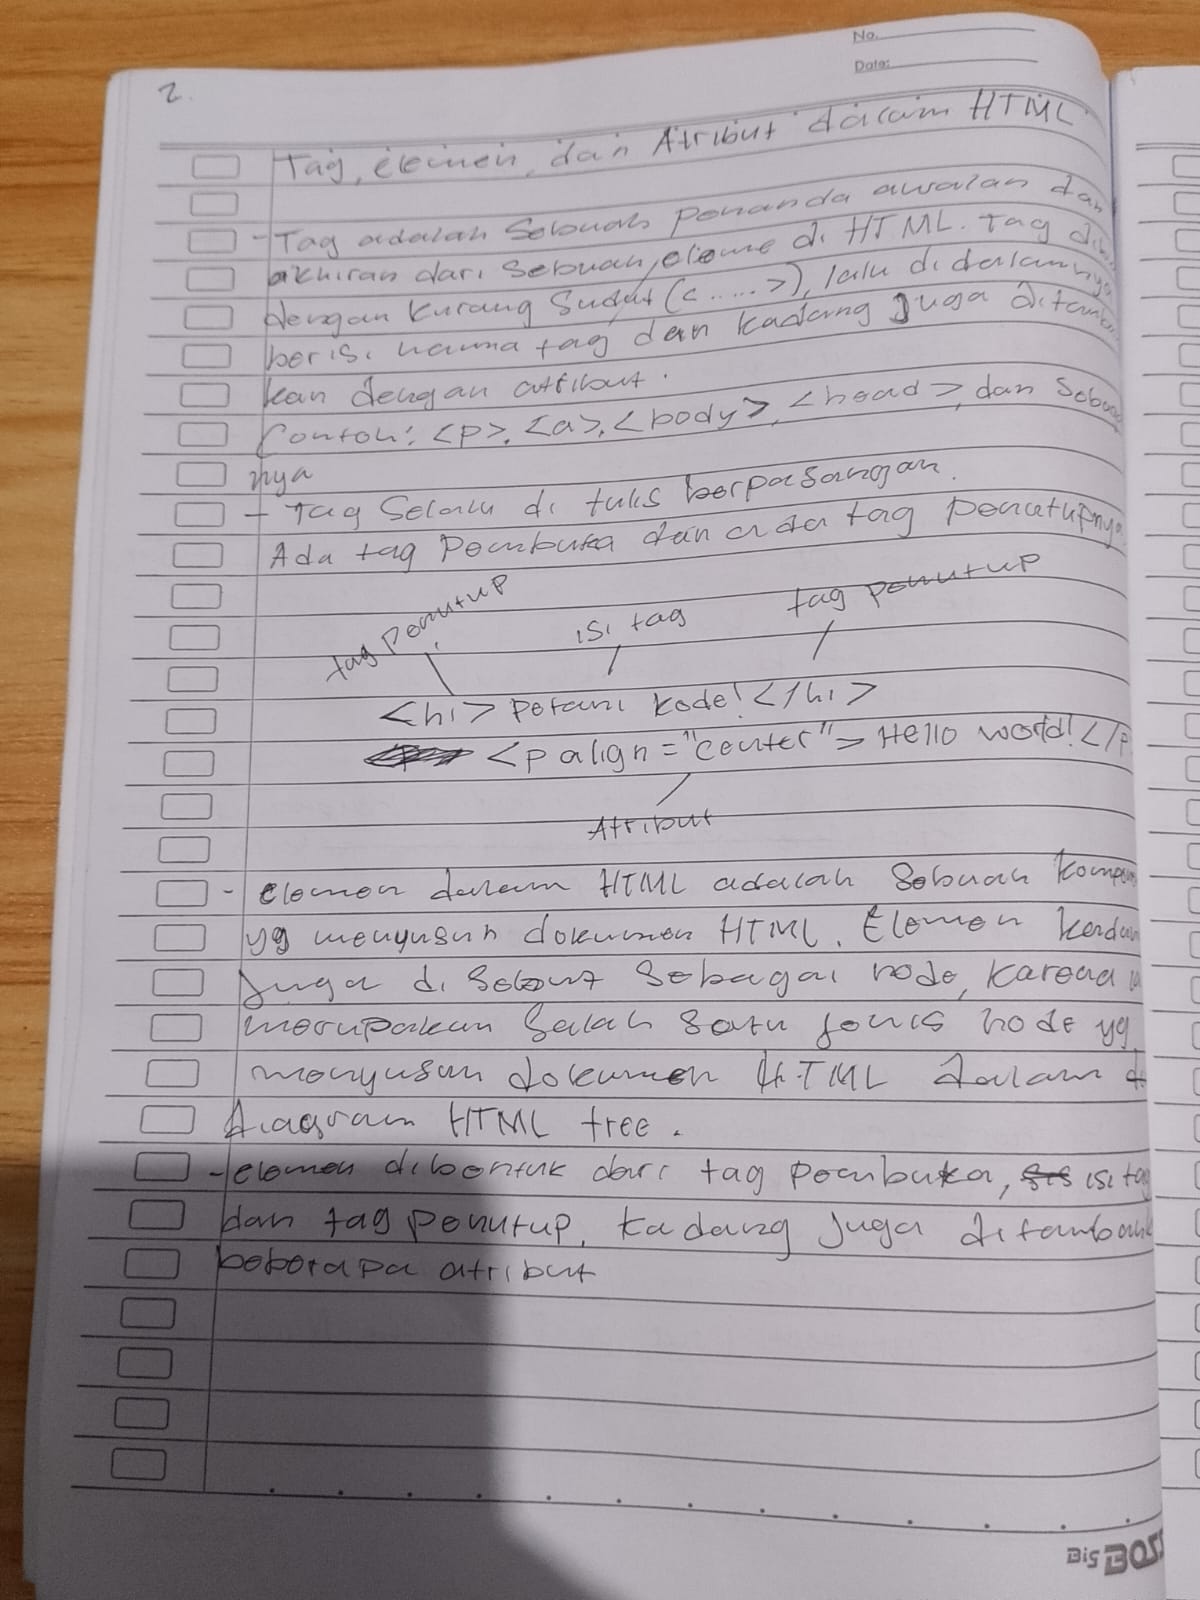 No.
Date:
2.
Tag, elemen, dan Atribut dalam HTML
- Tag adalah Sebuah penanda awalan dan
akhiran dari sebuah eleme di HTML. Tag
dengan kurung Sudut (<.....>), lalu didalamnya
berisi nama tag dan kadang juga
kan dengan attribut.
Contoh: <p>, <a>, <body>, <head>, dan
nya
- Tag Selalu di tulis berpasangan.
Ada tag Pembuka dan ada tag penutupnya
tag Penutup isi tag tag penutup
<h1> Petani kode! </h1>
<p align="center"> Hello world! </p
Atribut
- elemen dalam HTML adalah Sebuah
yg menyusun dokumen HTML. Elemen
Juga di Sebut Sebagai node, Karena
merupakan Salah Satu jenis node yg
menyusun dokumen HTML dalam
diagram HTML tree.
- elemen dibentuk dari tag pembuka, isi
dan tag penutup, kadang juga
beberapa atribut
Big BOSS